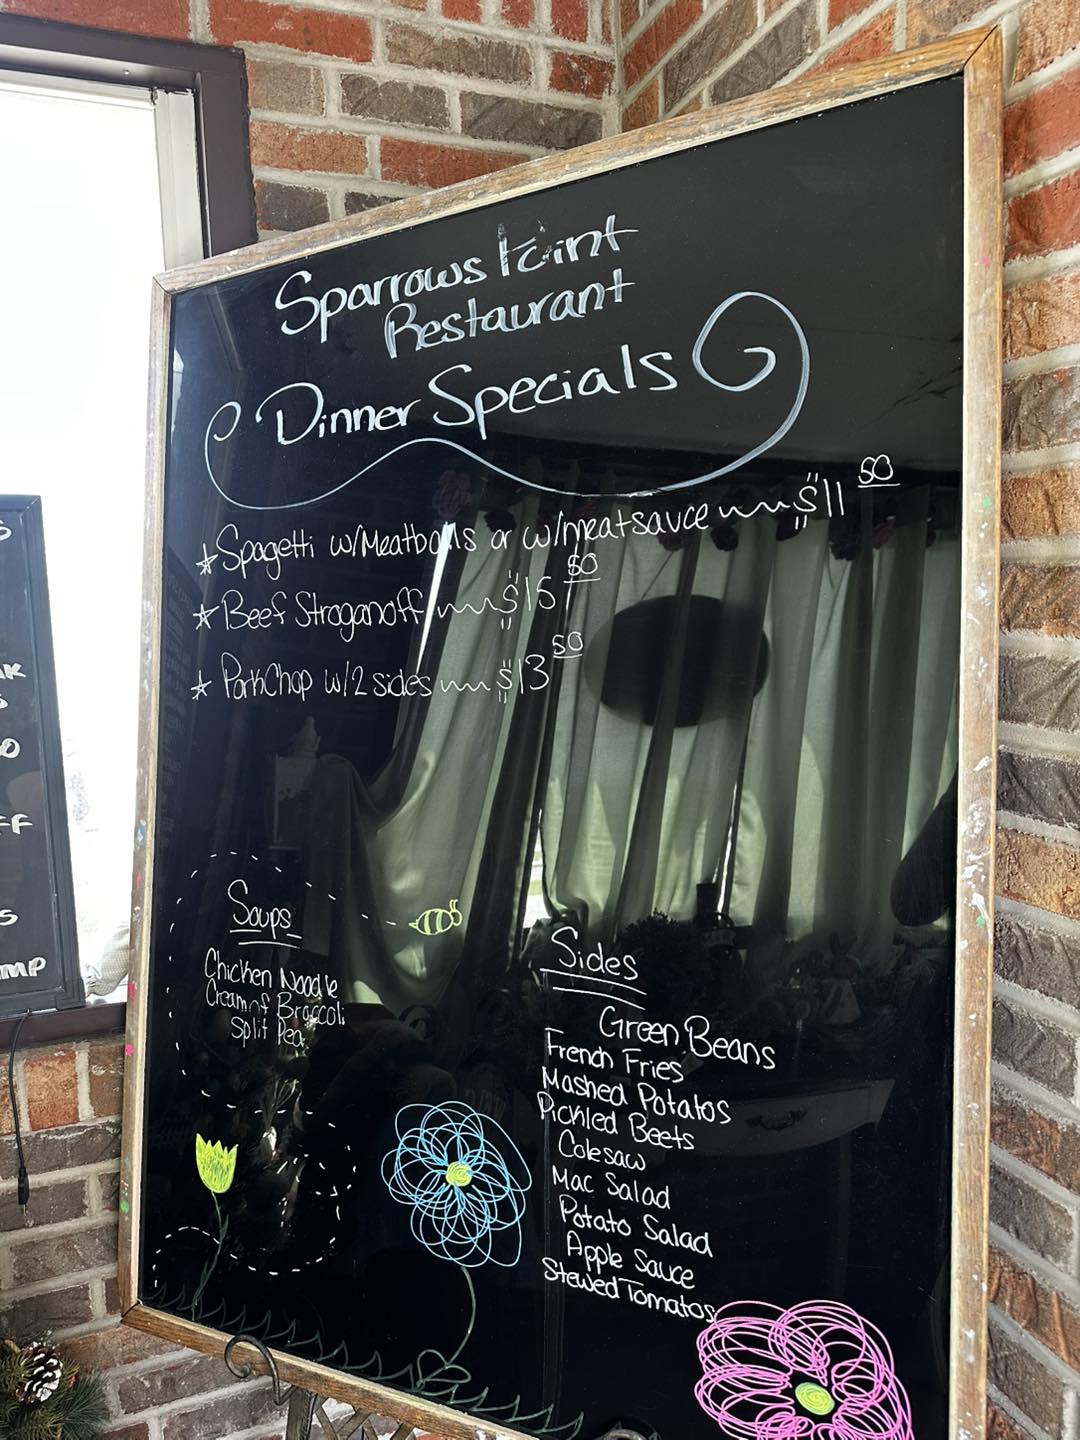 Sparrows Point
Restaurant
Dinner Specials
Spagetti w/Meatballs or w/meatsauce $11 50
Beef Stroganoff $15 50
PorkChop w/2 sides $13 50
Soups
Chicken Noodle
Cream of Broccoli
Split Pea
Sides
Green Beans
French Fries
Mashed Potatos
Pickled Beets
Colesaw
Mac Salad
Potato Salad
Apple Sauce
Stewed Tomatos